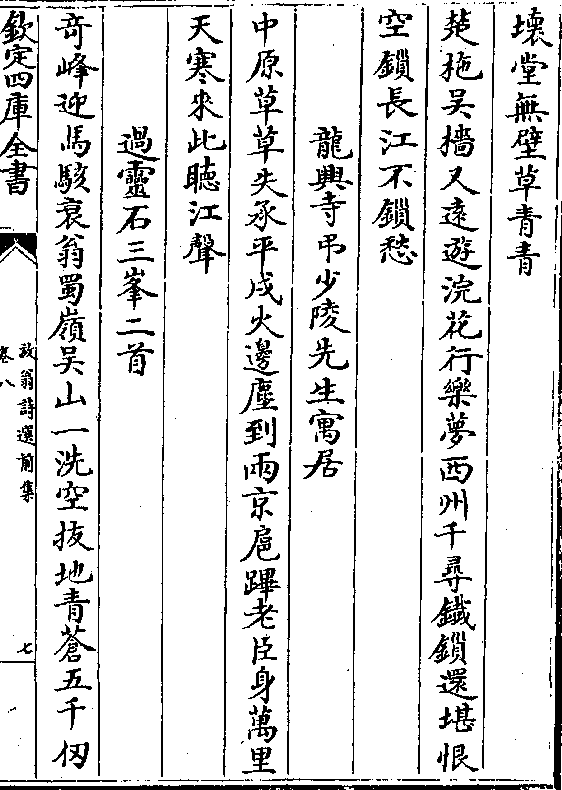 壞堂無壁草青青
楚拖吳檣又遠遊浣花行樂夢西州千尋鐵鎖還堪恨
空鎖長江不鎖愁
龍興寺弔少陵先生寓居
中原草草失承平戍火邊塵到兩京扈蹕老臣身萬里
天寒來此聽江聲
過靈石三峯二首
奇峰迎馬駭衰翁蜀嶺吳山一洗空拔地青蒼五千仞
欽定四庫全書
放翁詩選前集
卷八
七